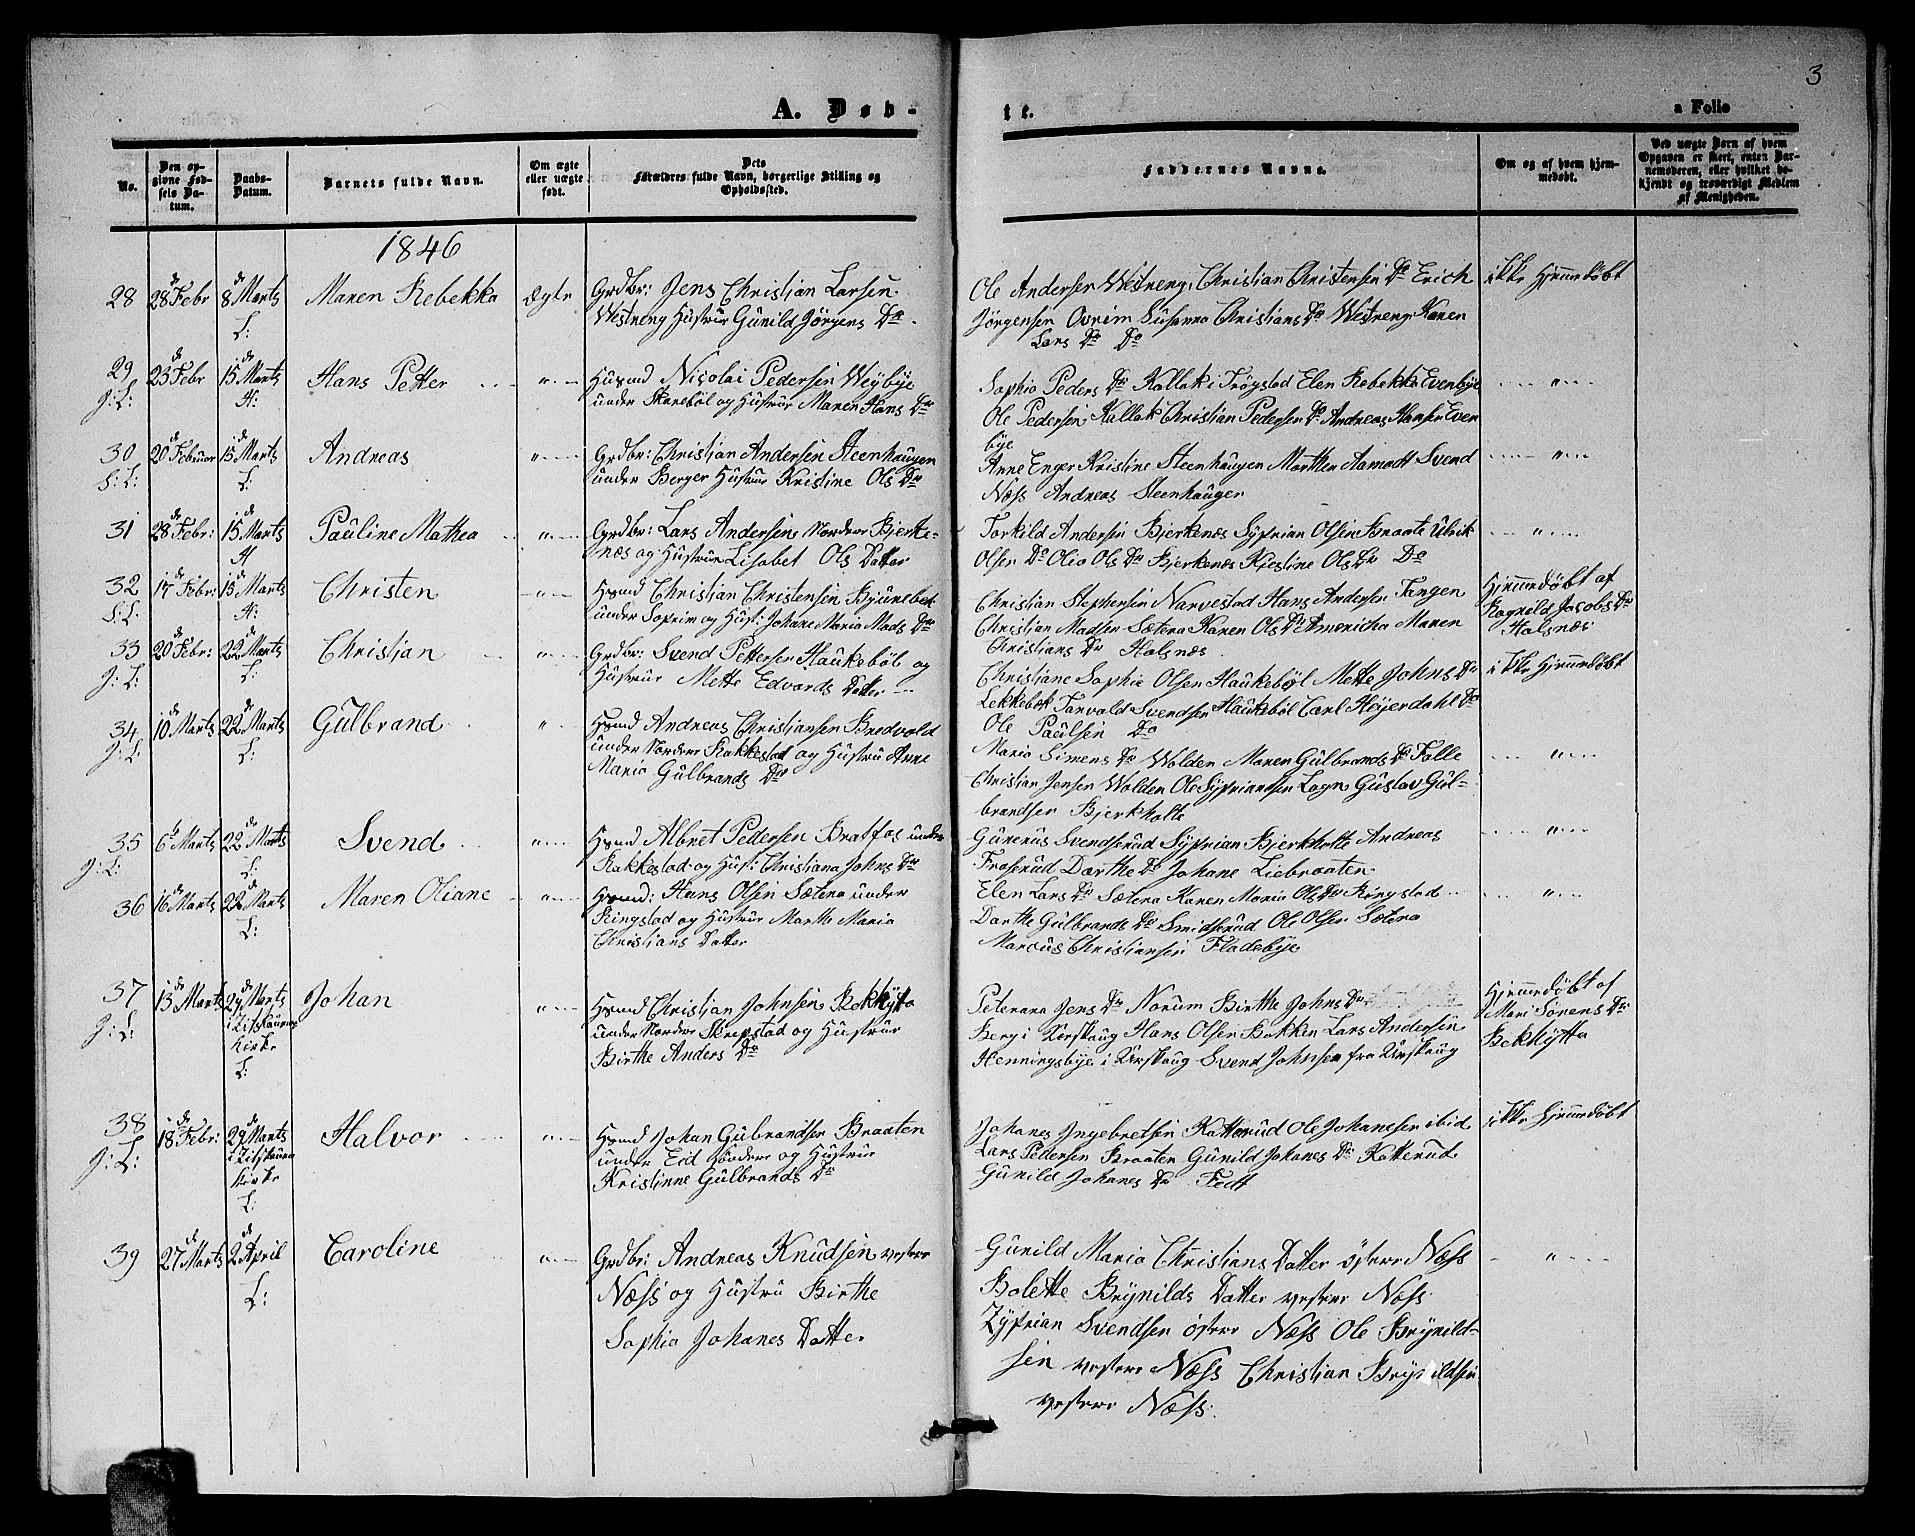 3
A. Døb-
te.
a Folio
No.
Den op-
givne Fød-
sels Da-
tum.
Daabs-
Datum.
Barnets fulde Navn.
Om ægte
eller uægte
født.
Dets
Forældres fulde Navn, borgerlige Stilling og
Opholdssted.
Faddernes Navne.
Om og af hvem hjem-
medøbt.
Ved uægte Barn af hvem
Opgaven er skeet, enten Bar-
nemoderen, eller hvilket be-
kjendt og troværdigt Medlem
af Menigheden.
1846
28 28de Febr 8de Marts Maren Rebekka ægte Grdbr: Jens Christian Larsen
L: Westreng Hustrue Gunild Jörgens Dr
Ole Andersen Westreng, Christian Christensen Do Erich ikke Hjemmedøbt
Jörgensen Ovrim Susanna Christians Dr Westreng, Karen
Lars Dr Do
29 23de Febr 15de Marts Hans Petter " Husmd Nicolai Pedersen Weybye
J: L: H: under Skanebøl og Hustrue Maren Hans Dr
Sophia Peders Dr Kallak i Trøgstad Elen Rebekka Evenbye "
Ole Pedersen Kallak Christian Pedersen Do Andreas Hansen Even
bye
30 20de Februar 15de Marts Andreas " Grdbr: Christian Andersen Steenhaugen
S: L: L: under Berger Hustrue Kristine Ols Dr
Anne Enger Kristine Steenhaugen Marthe Aamodt Svend "
Næss Andreas Steenhaugen
31 28de Febr: 15de Marts Pauline Mathea " Grdbr: Lars Andersen Nordere Bjerke-
H næs og Hustrue Lisabet Ols Datter
Torkild Andersen Bjerkenæs Syprian Olsen Braate Ulrik "
Olsen Do Olia Ols Dr Bjerkenæs Kjestine Ols Dr Do
32 17de Febr: 15de Marts Christen " Hsmd Christian Christensen Bjunebek
S: L: H: under Soprim og Hust: Johane Maria Mads Dr
Christian Stephensen Narvestad Hans Andersen Tangen Hjemmedøbt af
Christian Madsen Sætera Karen Ols Dr Americha Maren Ragnild Jacobs Dr
Christians Dr Halsnæs Halsnæs
33 20de Febr: 22de Marts Christian " Grdbr: Svend Pettersen Haukebøl og
J: L: L: Hustrue Mette Edvards Datter
Christiane Sophie Olsen Haukebøl Mette Johns Dr ikke Hjemmedøbt
Lekkebek Torvald Svendsen Haukebøl Carl Heyerdahl Do
Ole Paulsen Do
34 10de Marts 22de Marts Gulbrand " Hsmd Andreas Christiansen Bredvold
J: L. L: under Nordere Rakkestad og Hustru Anne
Maria Gulbrands Dr
Maria Simens Dr Wolden Maren Gulbrands Dr Falle "
Christian Jensen Wolden Ole Syprianssen Lagn Gustav Gul-
brandsen Bjerkholte
35 6te Marts 22de Marts Svend " Hsmd Albret Pedersen Bratfos under
J: L: L: Rakkestad og Hust: Christiana Johns Dr
Gunerus Svendserud Syprian Bjerkholte Andreas "
Froserud Darthe Do Johane Liebraaten
36 16de Marts 22de Marts Maren Oliane " Hsmd: Hans Olsen Sætera under
L: Ringstad og Hustrue Marthe Maria
Christians Datter
Elen Lars Dr Sætera Karen Maria Ols Dr Ringstad "
Darthe Gulbrands Dr Smidserud Ole Olsen Sætera
Marcus Christiansen Fladebye
37 13de Marts 29de Marts Johan " Hsmd Christian Johnsen Bekkhytta
J: L: Kirke under Nordere Skrepstad og Hustrue
L: Birthe Anders Dr
Peterana Jens Dr Norum Birthe Johns Dr Hjemmedøbt af
Berg i Urskaug Hans Olsen Bakken Lars Andersen Mari Sørens Dr
Henningsbye i Urskaug Svend Johnsen fra Urskaug Bekkhytta
38 18de Febr: 29de Marts Halvor " Hsmd Johan Gulbrandsen Braaten
J: L: Kirke under Eid Søndere og Hustrue
L: Kristinne Gulbrands Dr
Johanes Ingebretsen Katterud Ole Johanesen ibid ikke Hjemmedøbt
Lars Pedersen Braaten Gunild Johanes Dr Katterud
Gunild Johanes Dr Fedt
39 27de Marts 2de April Caroline " Grdbr: Andreas Knudsen vestere
L: Næss og Hustru Birthe
Sophia Johanes Datter
Gunild Maria Christians Datter östere Næss "
Bolette Brynilds Datter vestere Næss
Zyprian Svendsen östere Næss Ole Brynild-
sen vestere Næss Christian Brynildsen
vestere Næss.